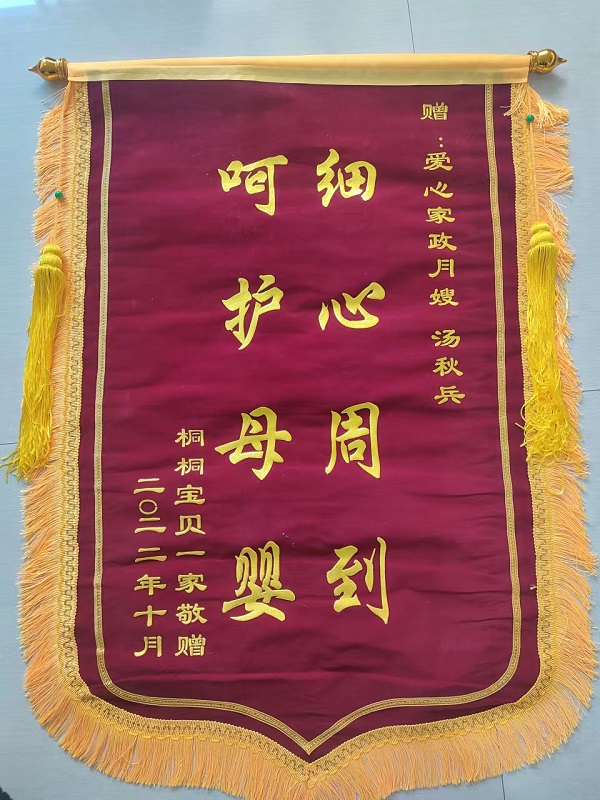 赠：爱心家政月嫂 汤秋兵
细心周到
呵护母婴
桐桐宝贝一家敬赠
二〇二二年十月